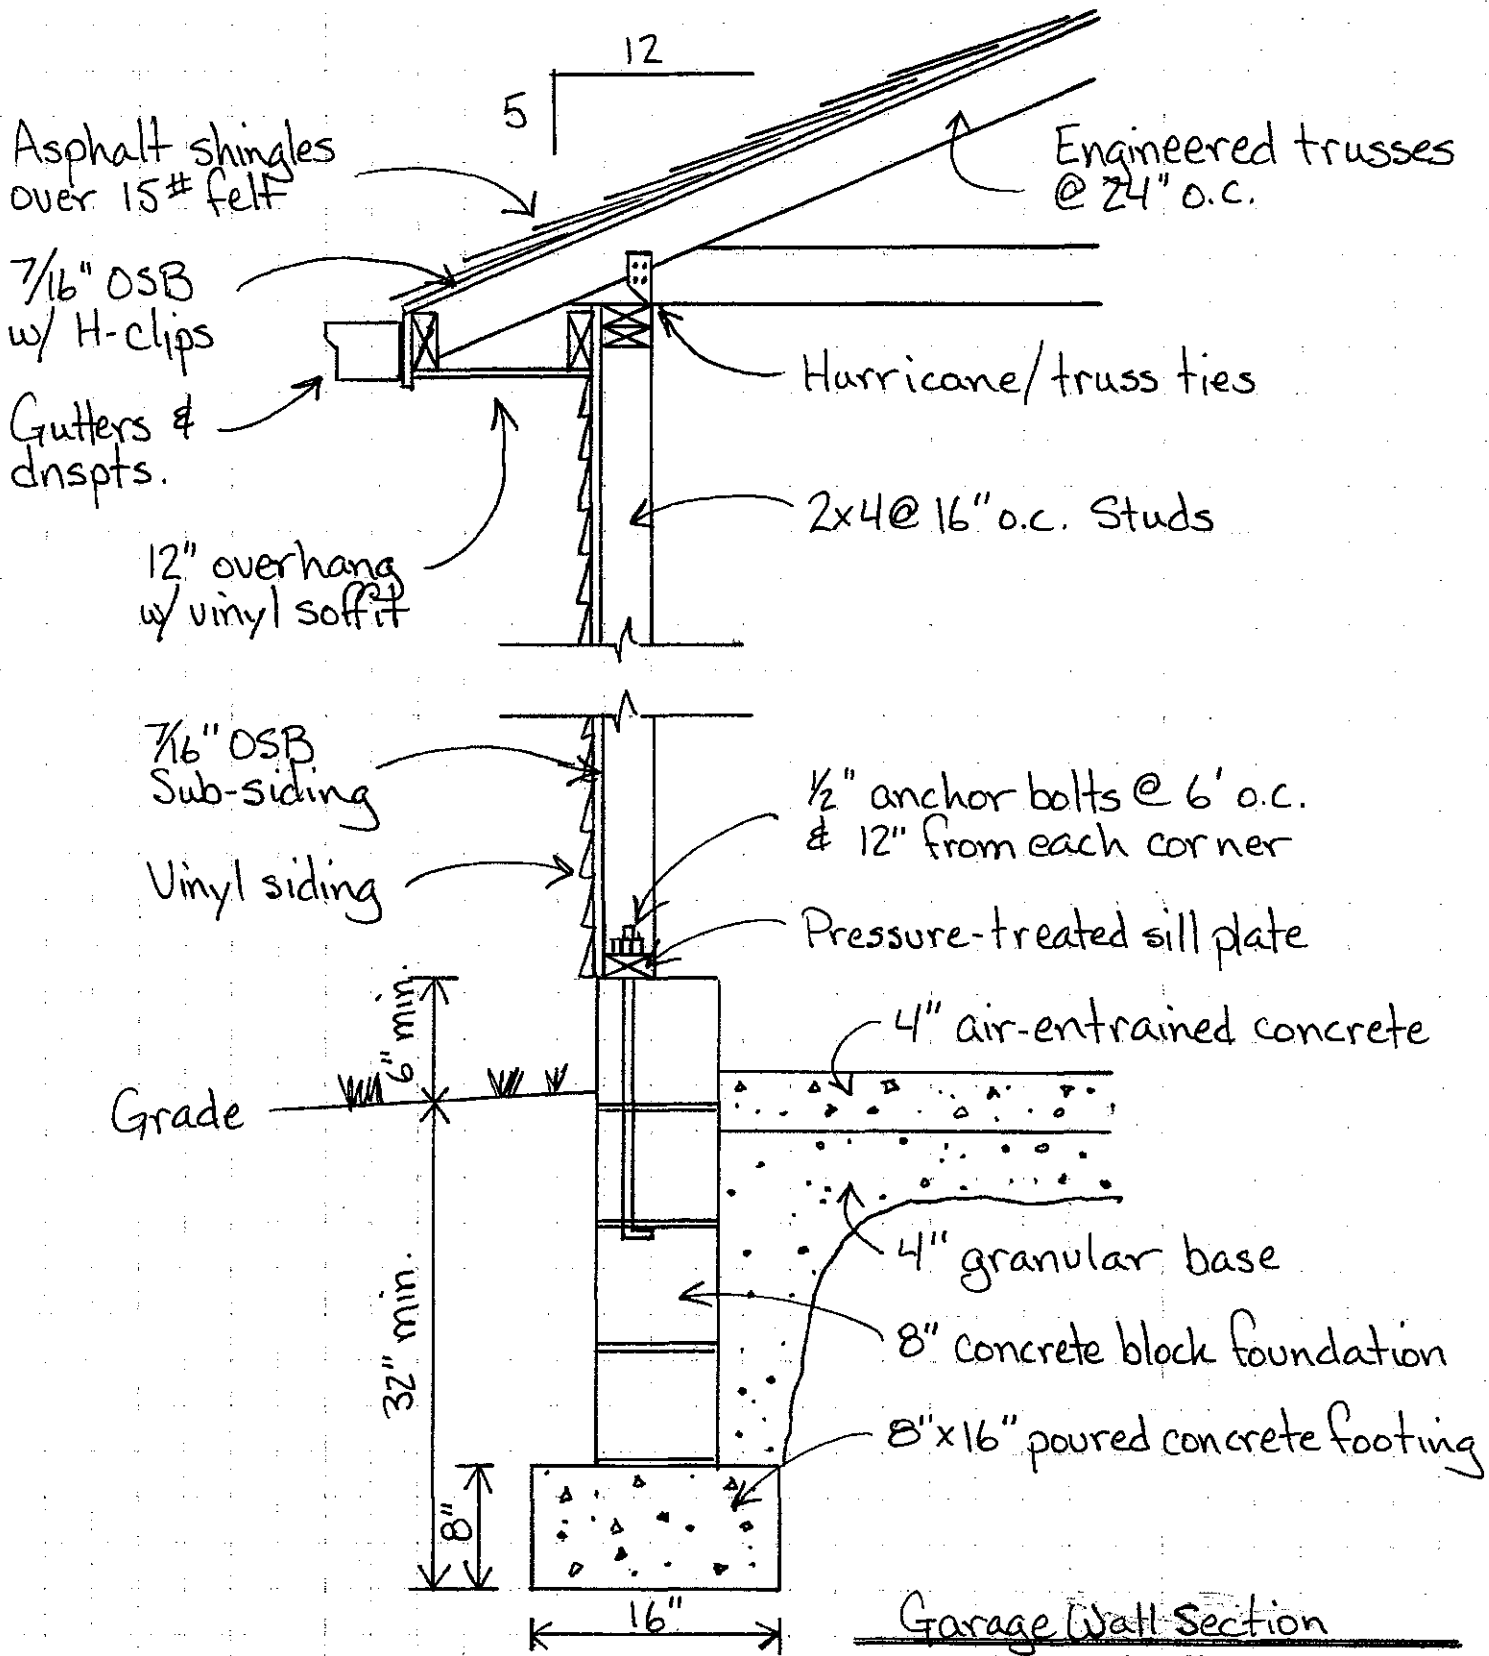 12
5
Asphalt shingles
over 15# felt
Engineered trusses
@ 24" o.c.
7/16" OSB
w/ H-clips
Hurricane/truss ties
Gutters &
dnspts.
2x4@ 16" o.c. Studs
12" overhang
w/ vinyl soffit
7/16" OSB
Sub-siding
1/2" anchor bolts @ 6' o.c.
& 12" from each corner
Vinyl siding
Pressure-treated sill plate
6" min.
4" air-entrained concrete
Grade
4" granular base
32" min.
8" concrete block foundation
8"x16" poured concrete footing
8"
16"
Garage Wall Section